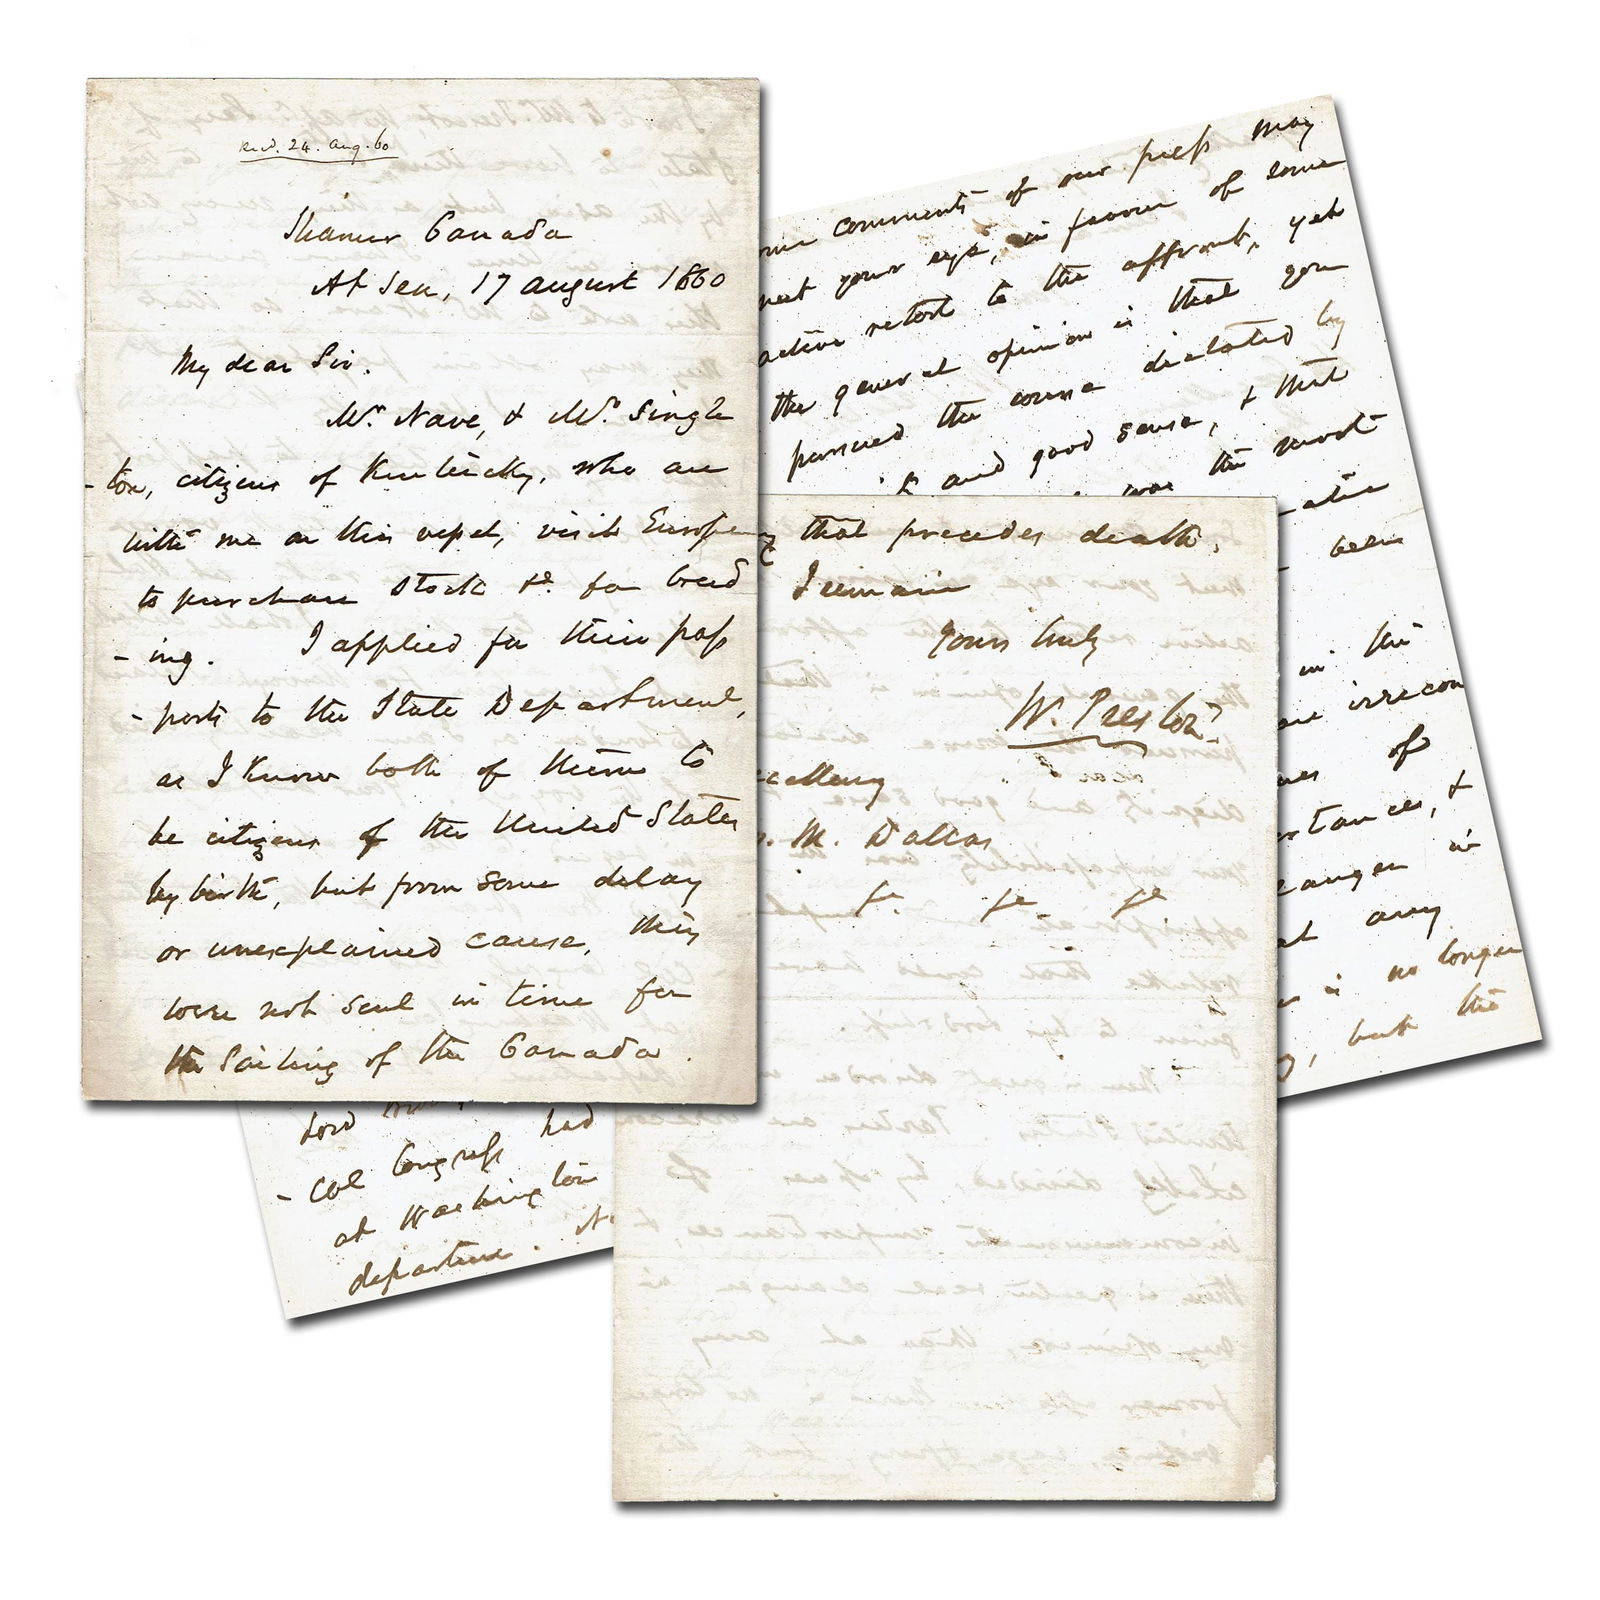 Recd. 24. Aug. 60
Steamer Canada
At Sea, 17 August 1860
My dear Sir.
Mr. Nave, & Mr. Single
-ton, citizens of Kentucky, who are
with me on this vessel, visit Europe
to purchase stock &c. for breed
-ing. I applied for their pass
-ports to the State Department,
as I know both of them to
be citizens of the United States
by birth, but from some delay
or unexplained cause, they
were not sent in time for
the sailing of the Canada.
comments of our press may
meet your eye, in favour of some
active retort to the affront, yet
the general opinion is that you
pursued the course dictated by
and good sense, & that
was the most
been
in the
are irrecon
of
& 
danger in
at any
is no longer
, but the
that precedes death.
I remain
Yours truly
W. Preston
ccellency
. M. Dallas
&c. &c &c
Lord
-cal Congress had
at Washington
departure.